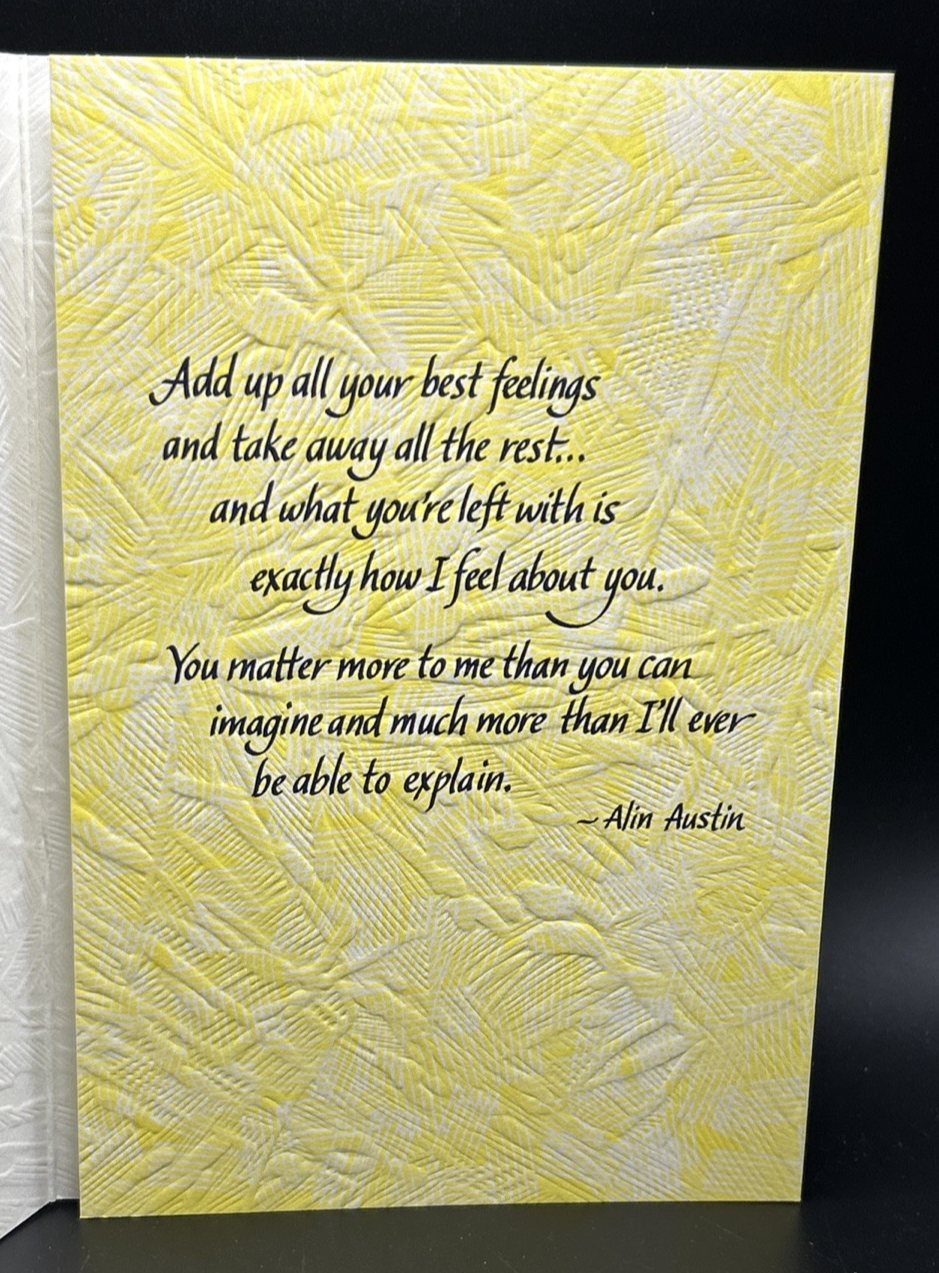 Add up all your best feelings
and take away all the rest...
and what you're left with is
exactly how I feel about you.
You matter more to me than you can
imagine and much more than I'll ever
be able to explain.
~ Alin Austin